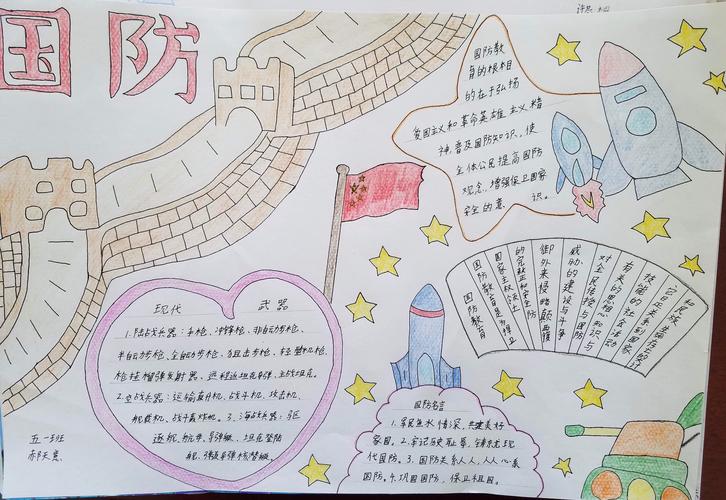 国防
国防教
育的根本目
的在于弘扬
爱国主义和革命英雄主义精
神,普及国防知识,使
全体公民提高国防
观念,增强保卫国家
安全的意识。
国防教育
国防教育是为捍卫
国家主权领土
的完整和安全防
御外来侵略颠覆
威胁的建设与斗争
对全民传授与国防
有关的思想知识与
技能的社会活动
关系到国家
和民族
现代 武器
1.陆战兵器:手枪、冲锋枪、非自动步枪、
半自动步枪、全自动步枪、狙击步枪、轻型机枪、
枪挂榴弹发射器、远程迫击炮、主战坦克。
2.空战兵器:运输直升机、战斗机、攻击机、
舰载机、战斗轰炸机。3.海战兵器:驱
逐舰、航母、坦克登陆
舰、核潜艇。
国防名言
1.军民鱼水情深,共建美好
家园。2.牢记历史耻辱,铸就现
代国防。3.国防关系人人,人人心系
国防。4.巩固国防,保卫祖国。
五一班
郝天意